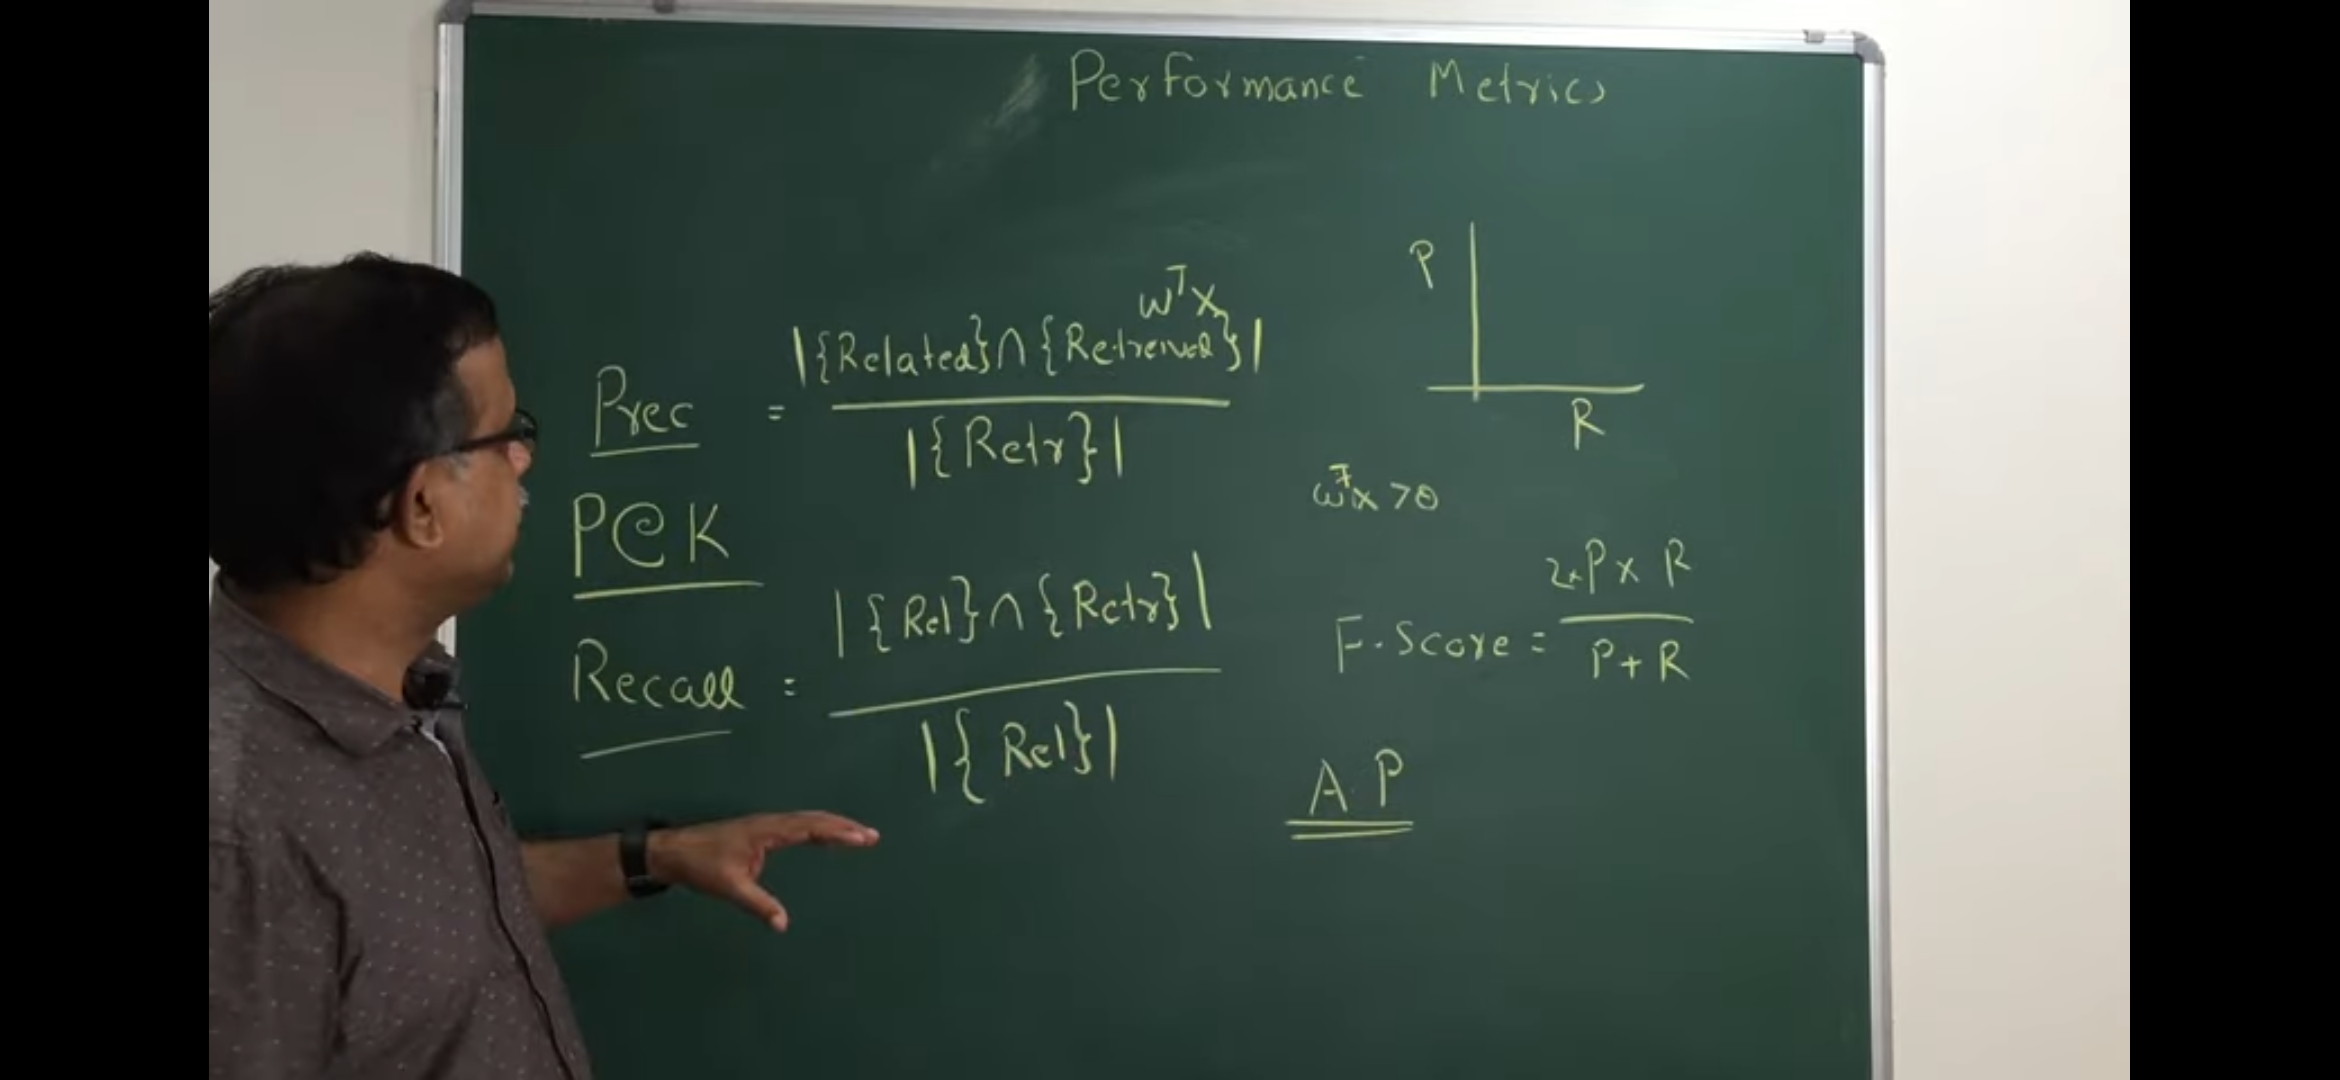 Performance Metrics
wᵀx
Prec = |{Related}∩{Retreived}| / |{Retr}|
P@K
Recall = |{Rel}∩{Retr}| / |{Rel}|
P
R
wᵀx >θ
F-Score = 2*P x R / P+R
A.P